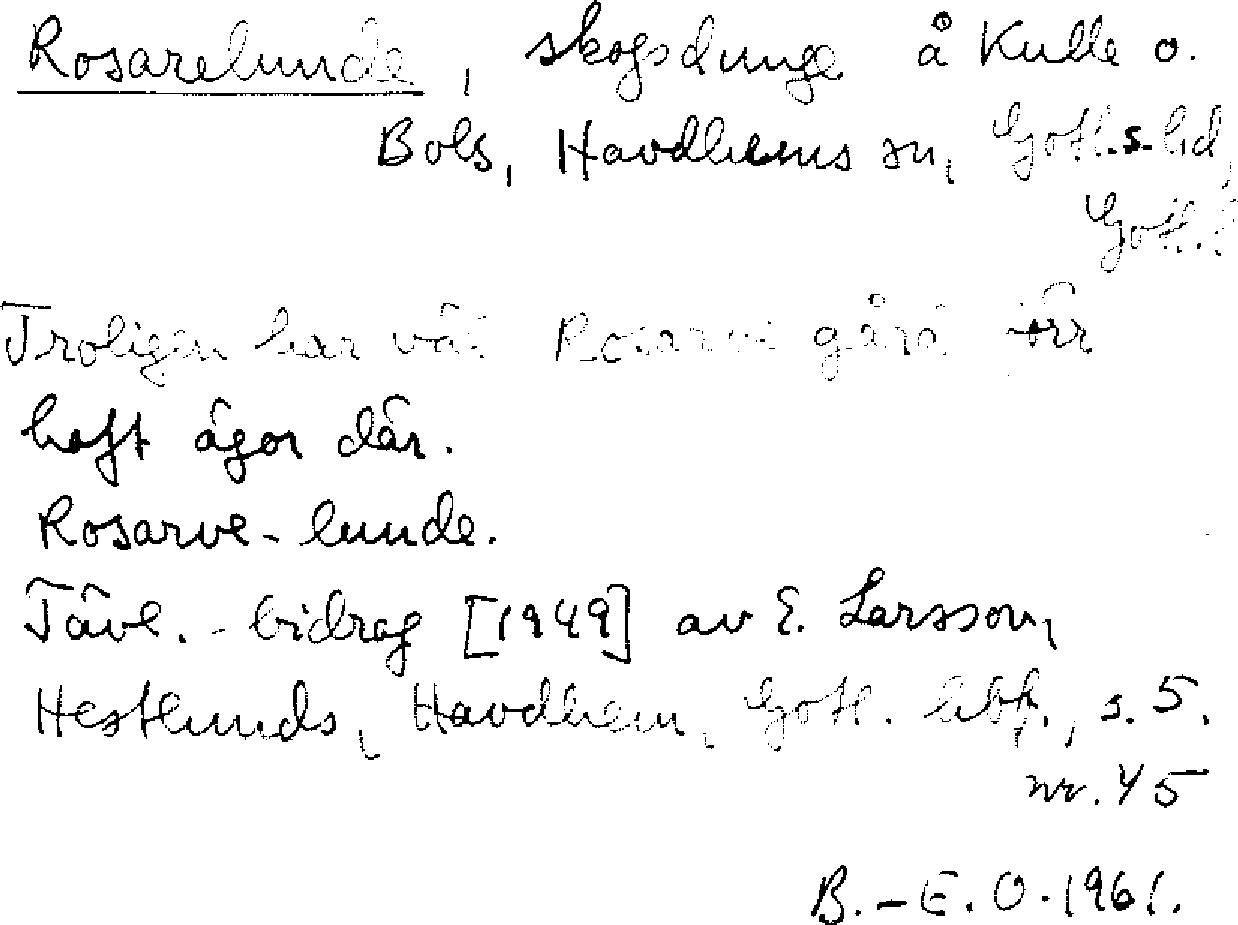 Rosarelunde, skogsdunge å Kulle o.
Bols, Havdhems sn, Gotl.s. hd,
Gotl.
Troligen har Rosarve gård förr
haft ägor där.
Rosarve-lunde.
Tävl.-bidrag [1949] av E. Larsson,
Hestlunds, Havdhem, Gotl. hbf., s. 5.
nr. 45
B.-E. O. 1961.